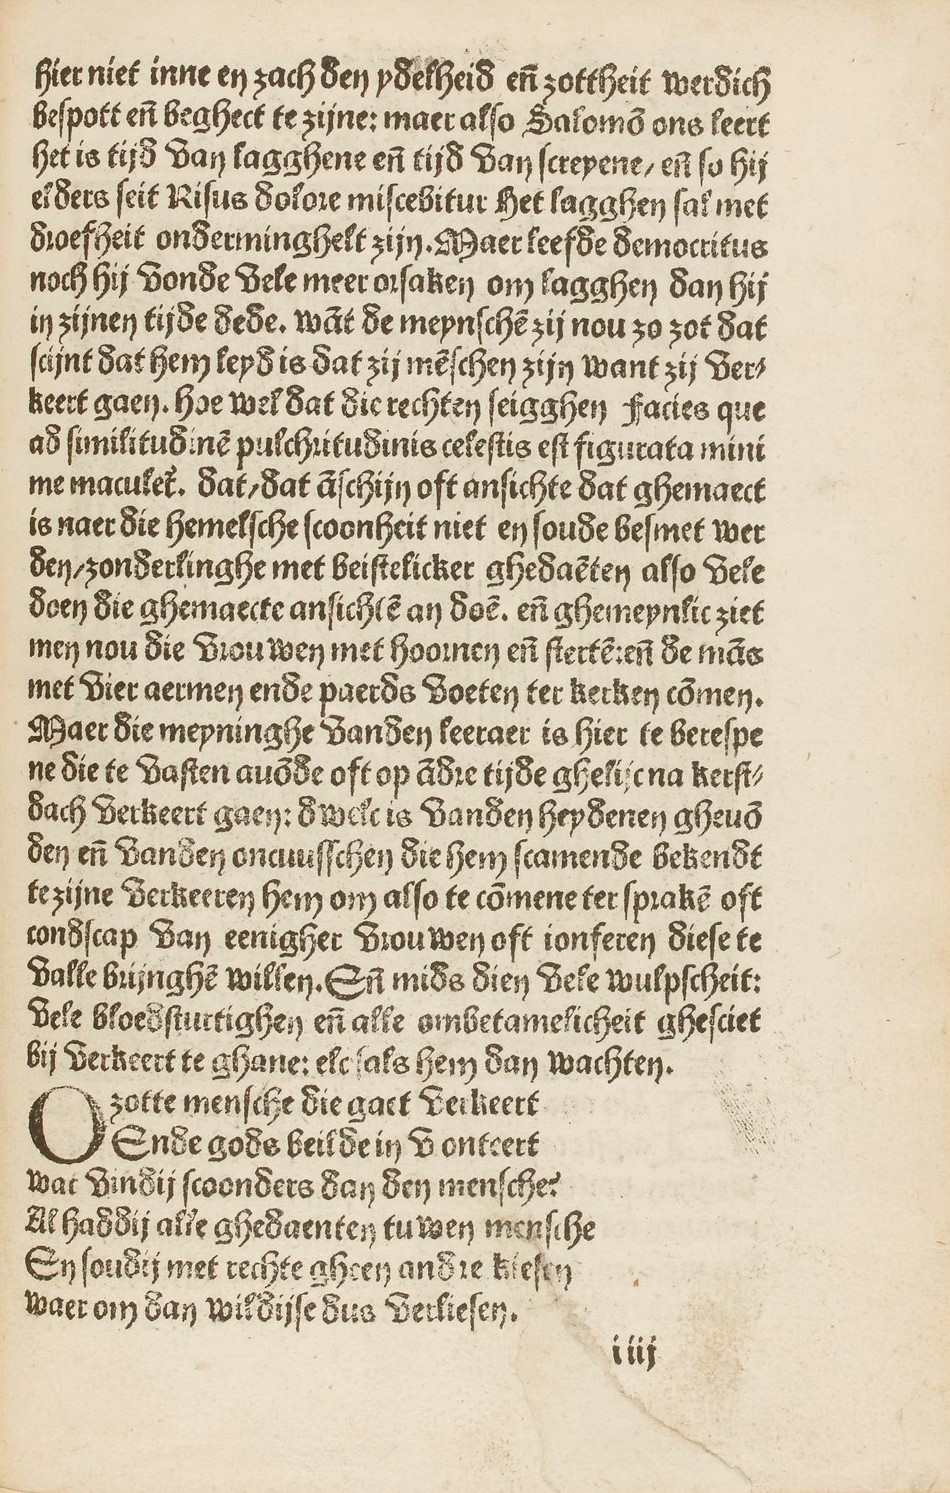 hier niet inne en zach den ydelheid eñ zottheit werdich
bespott eñ beghect te zijne: maer also Salomō ons leert
het is tijd van lagghene eñ tijd van screyene/ eñ so hij
elders seit Risus dolore miscebitur Het lagghen sal met
droefheit onderminghelt zijn. Maer leefde democritus
noch hij vonde vele meer orsaken om lagghen dan hij
in zijnen tijde dede. wāt de meynschē zij nou zo zot dat
scijnt dat hem leyd is dat zij mēschen zijn want zij ver/
keert gaen. hoe wel dat die rechten seigghen Facies que
ad similitudinē pulchritudinis celestis est figurata mini
me maculet̃. dat/dat āschijn oft ansichte dat ghemaect
is naer die hemelsche scoonheit niet en soude besmet wer
den/zonderlinghe met beistelicker ghedaēten also vele
doen die ghemaecte ansichtē an doē. eñ ghemeynlic ziet
men nou die vrouwen met hoornen eñ stertē:eñ de māς
met vier aermen ende paerds voeten ter kerken cōmen.
Maer die meyninghe vanden leeraer is hier te berespe
ne die te vasten auōde oft op ādre tijde ghelijc na kerst/
dach verkeert gaen: dwelc is vanden heydenen gheuō
den eñ vanden oncuusschen die hem scamende bekendt
te zijne verkeeren hem om also te cōmene ter sprakē oft
condscap van eenigher vrouwen oft ionferen diese te
valle brijnghē willen. Eñ mids dien vele wulpscheit:
vele bloedsturtighen eñ alle ombetamelicheit ghesciet
bij verkeert te ghane: elc sals hem dan wachten.
O zotte mensche die gaet verkeert
Ende gods beilde in v onteert
wat vindij scoonders dan den mensche?
Al haddij alle ghedaenten tuwen mensche
En soudij met rechte gheen andre kiesen
waer om dan wildijse dus verliesen.
iiij